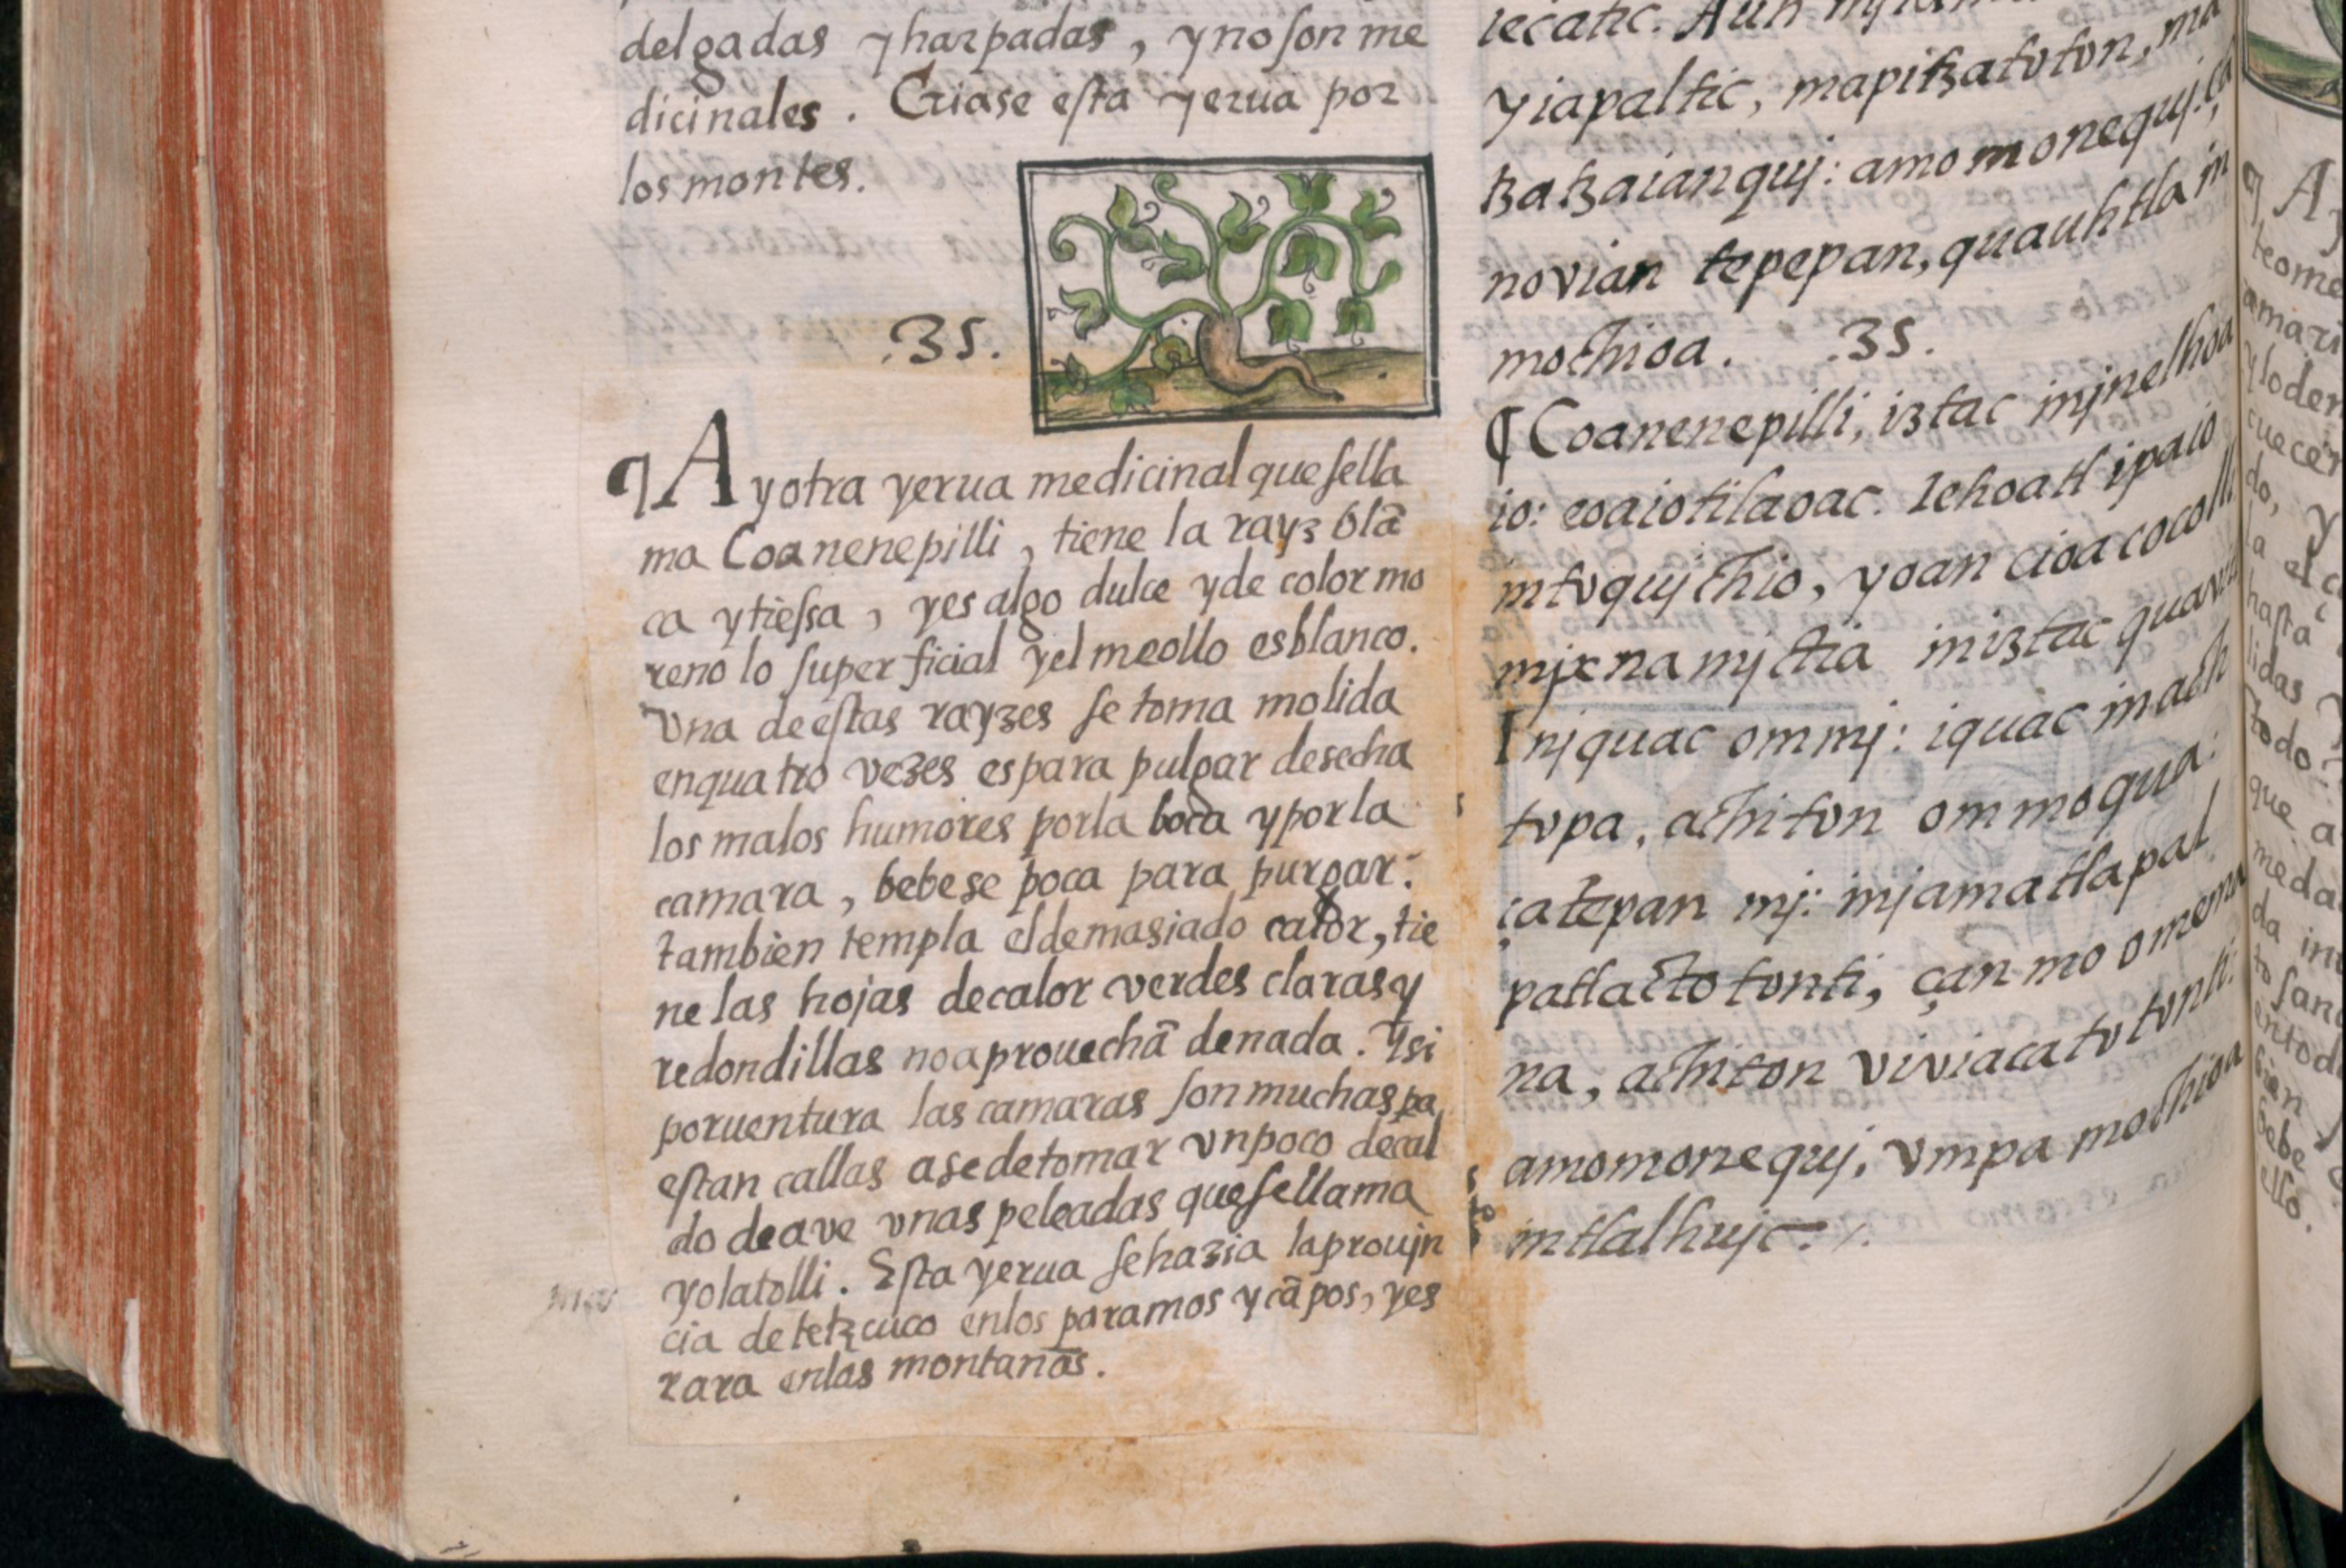 delgadas y harpadas, y no son me
dicinales. Criase esta yerua por
los montes.
.35.
¶ Ay otra yerua medicinal que se lla
ma Coanenepilli, tiene la rayz blã
ca y tiessa, y es algo dulce y de color mo
reno lo superficial y el meollo es blanco.
vna de estas rayzes se toma molida
en quatro vezes es para pulgar desecha
los malos humores por la boca y por la
camara, bebese poca para purgar:
tambien templa el demasiado calor, tie
ne las hojas de calor verdes claras y
redondillas no aprouechã de nada. Y si
poruentura las camaras son muchas pa
estan callas a se de tomar vn poco de cal
do de ave vnas peleadas que se llama
yolatolli. Esta yerua se hazia la proujn
cia de tetzcuco en los paramos y cãpos, y es
rara en las montanas.
iecatic. Auh
yiapaltic, mapitzatoton, ma
tzatzaianquj: amo monequj. ça
novian tepepan, quauhtla in
mochioa. .35.
¶ Coanenepilli, iztac injnelhoa
io: coaiotilaoac. Iehoatl ipaio
intvqujchio, yoan cioa cocolli
mjxnamjctia in iztac quavi
Injquac ommj: iquac in ach
tvpa, achiton ommoqua:
çatepan mj: injamatlapal
patlactotonti, çan mo omema
na, achiton viviacatotonti:
amo monequj, vmpa mochioa
intlalhujc.
¶ Ay
teome
amari
y loder
cuecen
do, y
la el c
hasta
lidas y
todo
que a
meda
da in
to san
entod
bien
bebe
ello.